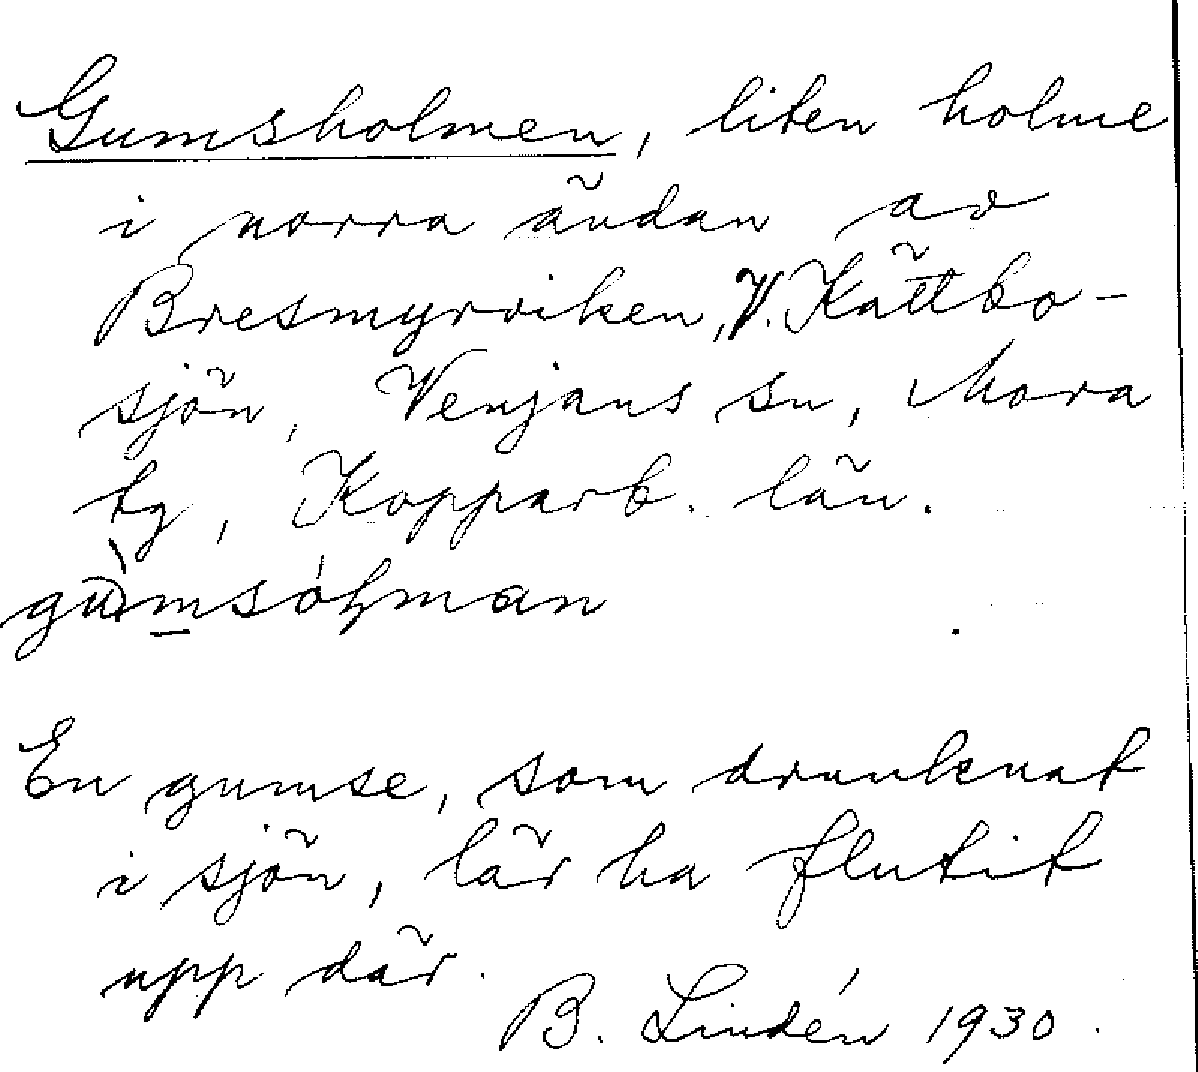 Gumsholmen, liten holme
i norra ändan av
Bresmyrviken, V. Kättbo-
sjön, Venjans sn, Mora
tg, Kopparb. län.
gùmsóɫman
En gumse, som drunknat
i sjön, lär ha flutit
upp där.
B. Lindén 1930.